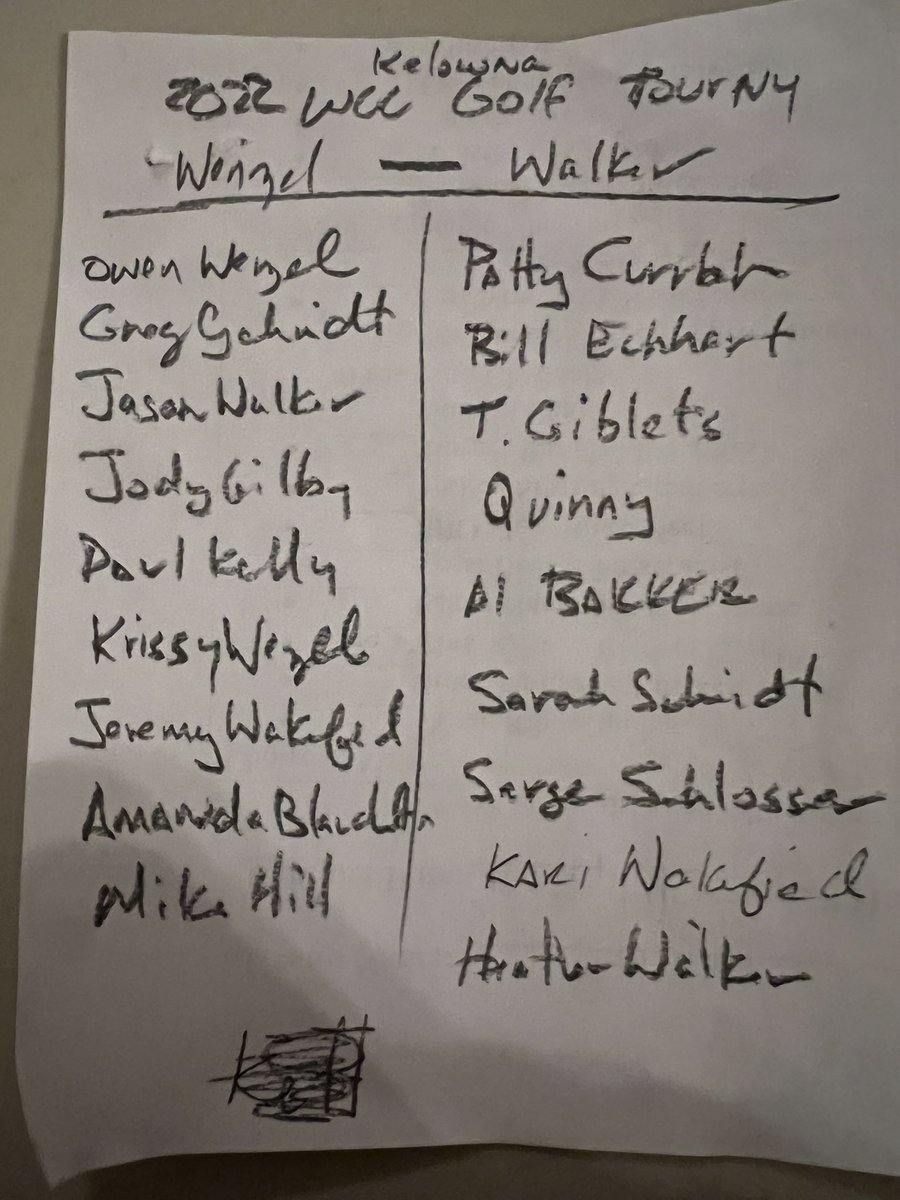 Kelowna
2022 WCC GOLF TOURNY
Wenzel — Walker
Owen Wenzel
Greg Schmidt
Jason Walker
Jody Gilby
Paul Kelly
Krissy Wenzel
Jeremy Wakefied
Amanda
Mike Hill
Patty
Bill Eckhart
T. Giblets
Quinny
Al BAKKER
Sarah Schmidt
Serge Schlosser
KARI Wakefied
Heather Walker